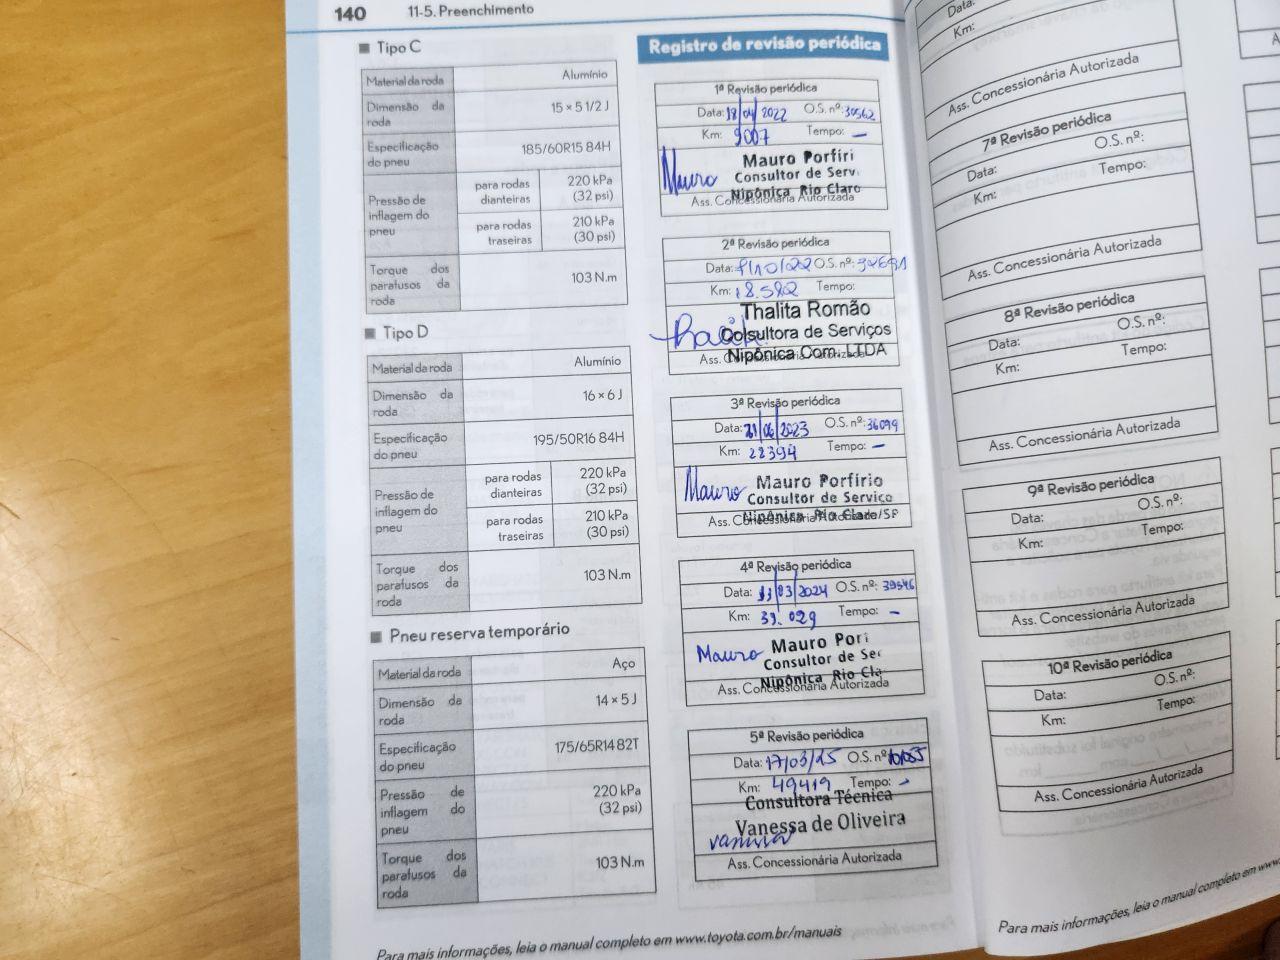 140 11-5. Preenchimento
Tipo C
Material da roda Alumínio
Dimensão da roda 15 × 5 1/2 J
Especificação do pneu 185/60R15 84H
Pressão de inflagem do pneu
para rodas dianteiras 220 kPa (32 psi)
para rodas traseiras 210 kPa (30 psi)
Torque dos parafusos da roda 103 N.m
Tipo D
Material da roda Alumínio
Dimensão da roda 16 × 6 J
Especificação do pneu 195/50R16 84H
Pressão de inflagem do pneu
para rodas dianteiras 220 kPa (32 psi)
para rodas traseiras 210 kPa (30 psi)
Torque dos parafusos da roda 103 N.m
Pneu reserva temporário
Material da roda Aço
Dimensão da roda 14 × 5 J
Especificação do pneu 175/65R14 82T
Pressão de inflagem do pneu 220 kPa (32 psi)
Torque dos parafusos da roda 103 N.m
Para mais informações, leia o manual completo em www.toyota.com.br/manuais
Registro de revisão periódica
1ª Revisão periódica
Data: 18/04/2022 O.S. nº: 30562
Km: 9007 Tempo: —
Mauro
Mauro Porfíri
Consultor de Serv
Nipônica Rio Claro
Ass. Concessionária Autorizada
2ª Revisão periódica
Data: O.S. nº:
Km: 18.582 Tempo:
Thalita Romão
Colsultora de Serviços
Nipônica Com. LTDA
Ass. Concessionária Autorizada
3ª Revisão periódica
Data: 21/06/2023 O.S. nº: 36099
Km: 28394 Tempo: —
Mauro
Mauro Porfírio
Consultor de Serviço
Nipônica Rio Claro/SP
Ass. Concessionária Autorizada
4ª Revisão periódica
Data: 11/03/2024 O.S. nº: 39546
Km: 39.029 Tempo: —
Mauro
Mauro Porí
Consultor de Ser
Nipônica Rio Cla
Ass. Concessionária Autorizada
5ª Revisão periódica
Data: 17/03/25 O.S. nº
Km: 49419 Tempo: -
Consultora Técnica
Vanessa de Oliveira
Ass. Concessionária Autorizada
Data:
Km:
Ass. Concessionária Autorizada
7ª Revisão periódica
Data: O.S. nº:
Km: Tempo:
Ass. Concessionária Autorizada
8ª Revisão periódica
Data: O.S. nº:
Km: Tempo:
Ass. Concessionária Autorizada
9ª Revisão periódica
Data: O.S. nº:
Km: Tempo:
Ass. Concessionária Autorizada
10ª Revisão periódica
Data: O.S. nº:
Km: Tempo:
Ass. Concessionária Autorizada
Para mais informações, leia o manual completo em www.